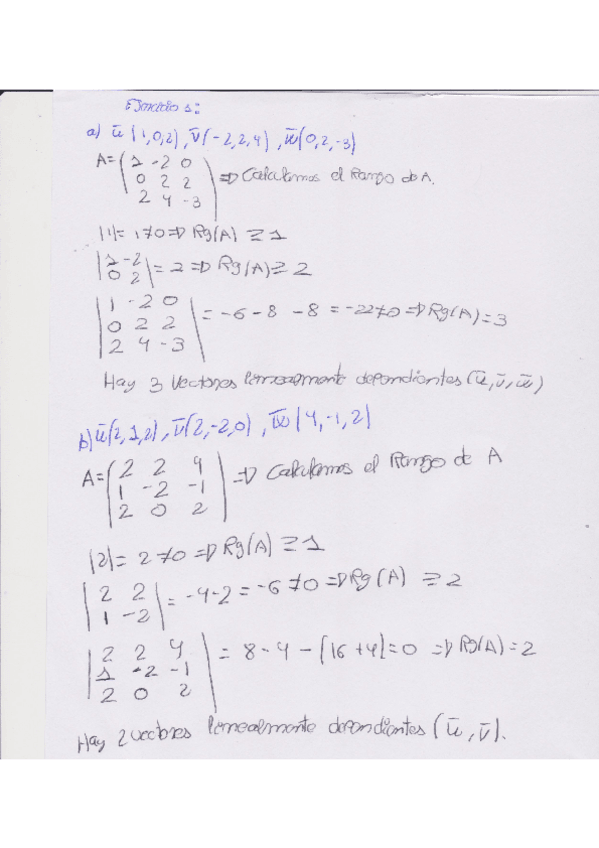 Ejercicio 1:
a) ū(1,0,2), v̄(-2,2,4), w̄(0,2,-3)
A=(1 -2 0
0 2 2 => Calculamos el Rango de A.
2 4 -3)
|1|= 1≠0 => Rg(A) ≥ 1
|1 -2
0 2| = 2 => Rg(A) ≥ 2
|1 -2 0
0 2 2 = -6-8 -8 = -22≠0 => Rg(A)=3
2 4 -3|
Hay 3 vectores linealmente dependientes (ū, v̄, w̄)
b) ū(2,1,2), v̄(2,-2,0), w̄(4,-1,2)
A=(2 2 4
1 -2 -1 => Calculamos el Rango de A
2 0 2)
|2|= 2≠0 => Rg(A) ≥ 1
|2 2
1 -2| = -4-2 = -6≠0 => Rg(A) ≥ 2
|2 2 4
1 -2 -1 = 8-4-[16+4]=0 => Rg(A)=2
2 0 2|
Hay 2 vectores linealmente dependientes (ū, v̄).